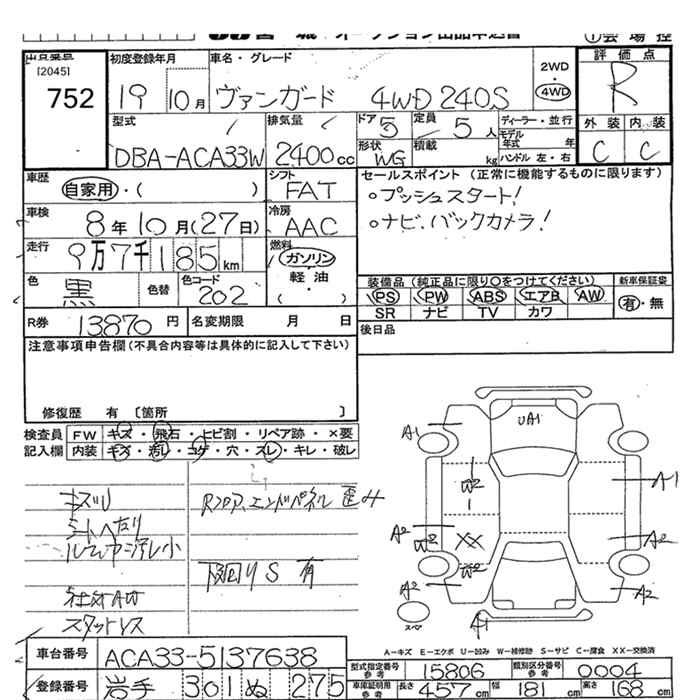 宮城オークション出品申込書 ①会場控
出品番号
[2045]
752
初度登録年月
19 10月
車名・グレード
ヴァンガード 4WD 240S
2WD
4WD
評価点
R
外装 内装
C C
型式
DBA-ACA33W
排気量
2400cc
ドア
5
定員
5人
形状
WG
積載
kg
ディーラー・並行
モデル年式 年
ハンドル 左・右
車歴
自家用・( )
シフト
FAT
車検
8年10月(27日)
冷房
AAC
走行
9万7千185km
燃料
ガソリン
軽油
( ・ )
色
黒
色替
色コード
202
セールスポイント (正常に機能するものに限ります)
○プッシュスタート!
○ナビ、バックカメラ!
装備品(純正品に限り○をつけてください)
PS PW ABS エアB AW
SR ナビ TV カワ
新車保証袋
有・無
後日品
R券 13870円
名変期限 月 日
注意事項申告欄(不具合内容等は具体的に記入して下さい)
修復歴 有 〔箇所 〕
検査員記入欄
FW キズ・飛石・ヒビ割・リペア跡・×要
内装 キズ・汚レ・コゲ・穴・スレ・キレ・破レ
キズU
シートへたり
ルーム内汚レ小
社外AW
スタットレス
Rフロア、エンドパネル 歪み
下回りS 有
UA1
A1
A1
W2
A2
W2
XX
W2
A2
A2
A2
A1
スペア
A-キズ E-エクボ U-凹み W-補修跡 S-サビ C-腐食 XX-交換済
車台番号
ACA33-5137638
登録番号
岩手 301 ぬ 275
型式指定番号 参考
15806
類別区分番号 参考
0004
車庫証明用 参考
長さ 457cm 幅 181cm 高さ 168cm